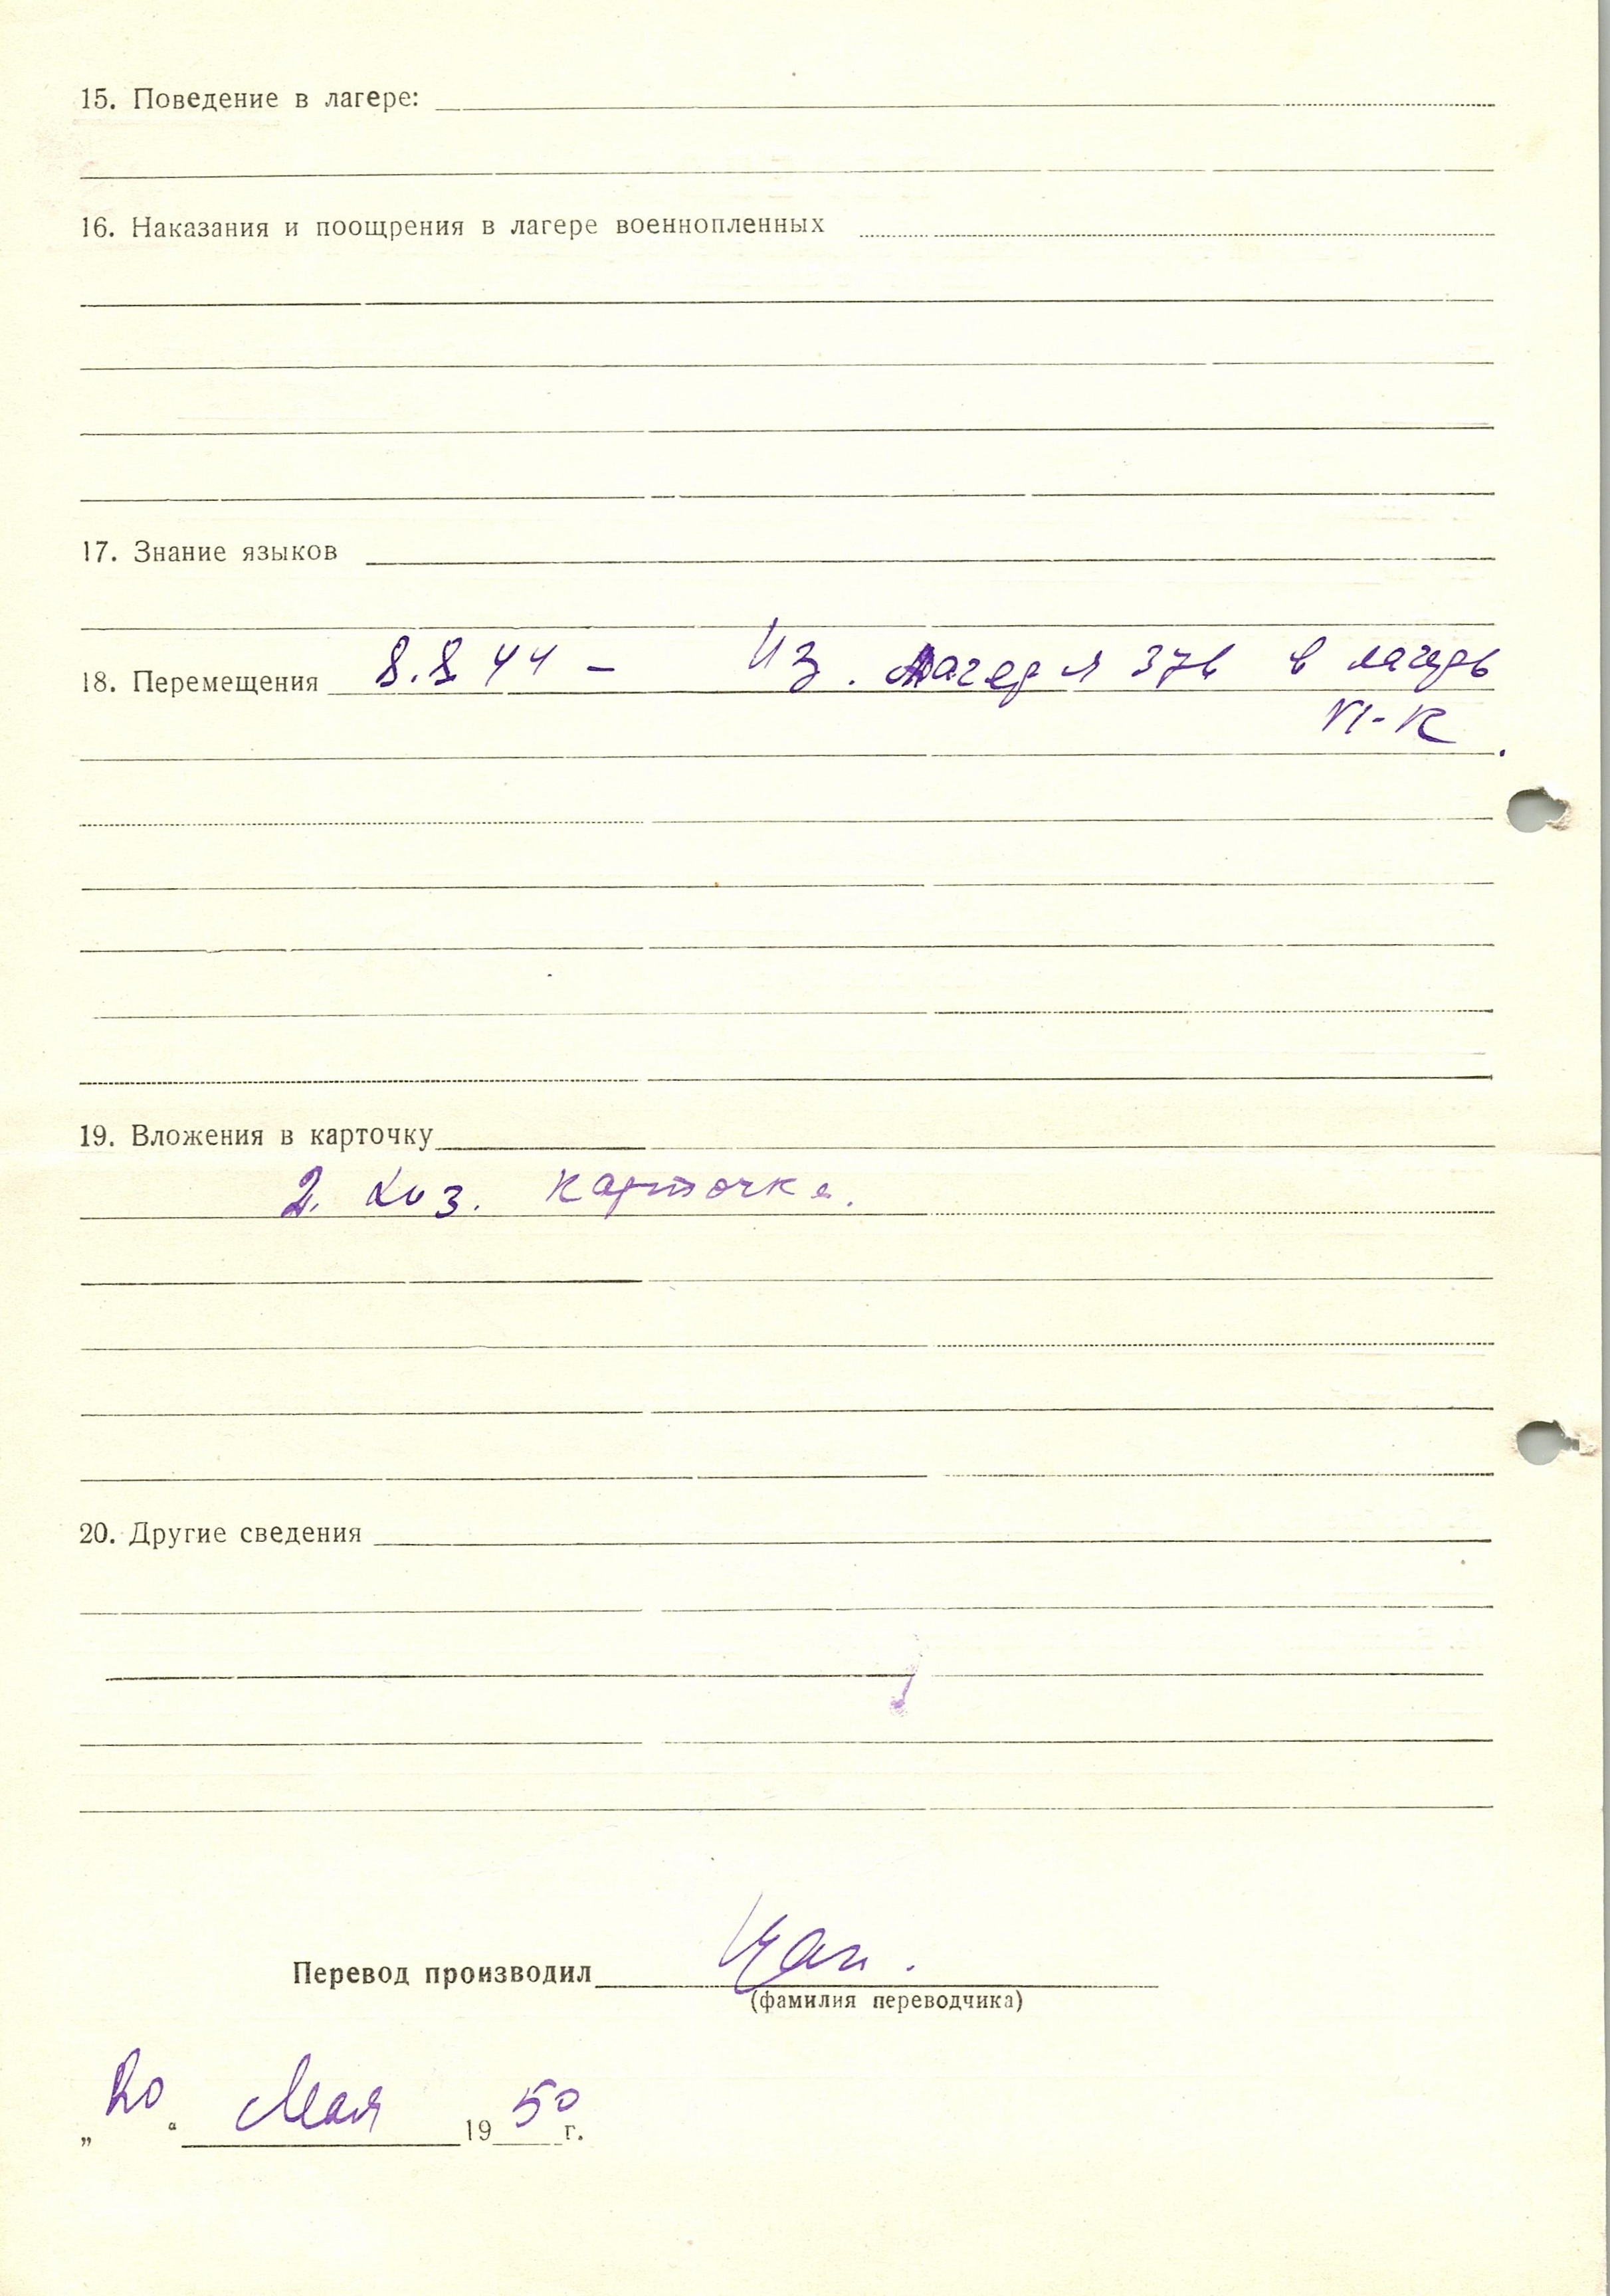 15. Поведение в лагере:
16. Наказания и поощрения в лагере военнопленных
17. Знание языков
18. Перемещения 8.8.44 – Из. лагеря 326 в лагерь
VI-К.
19. Вложения в карточку
2. карточке.
20. Другие сведения
Перевод производил
(фамилия переводчика)
„20“ Мая 1950 г.